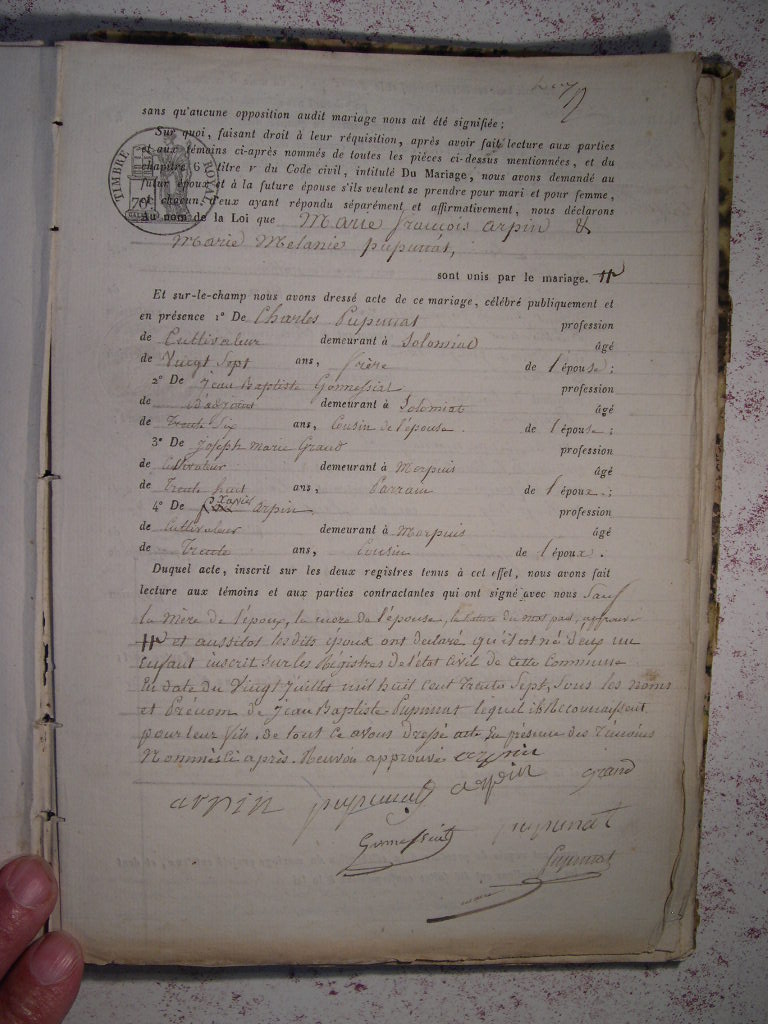 sans qu'aucune opposition audit mariage nous ait été signifiée ;
Sur quoi, faisant droit à leur réquisition, après avoir fait lecture aux parties
et aux témoins ci-après nommés de toutes les pièces ci-dessus mentionnées, et du
chapitre 6 titre v du Code civil, intitulé Du Mariage, nous avons demandé au
futur époux et à la future épouse s'ils veulent se prendre pour mari et pour femme,
et chacun d'eux ayant répondu séparément et affirmativement, nous déclarons
Au nom de la Loi que Marie françois arpin &
Marie Mélanie pupunat,
TIMBRE ROYAL
70
sont unis par le mariage.
Et sur-le-champ nous avons dressé acte de ce mariage, célébré publiquement et
en présence 1° De Charles Pupunat profession
de Cultivateur demeurant à Solomiat âgé
de Vingt Sept ans, frère de l'épouse ;
2° De Jean Baptiste Gomessiat profession
de demeurant à Solomiat âgé
de Trente Six ans, Cousin de l'épouse. de l'épouse ;
3° De Joseph Marie Grand profession
de Cultivateur demeurant à Morpuis âgé
de Trente huit ans, Parrain de l'époux ;
4° De Xavier arpin profession
de Cultivateur demeurant à Morpuis âgé
de Trente ans, Cousin de l'époux.
Duquel acte, inscrit sur les deux registres tenus à cet effet, nous avons fait
lecture aux témoins et aux parties contractantes qui ont signé avec nous Sauf
la Mère de l'époux, la mère de l'épouse,
et aussitot lesdits époux ont déclaré qu'il est né d'eux un
Enfant inscrit sur les Régistres de l'état Civil de cette Commune
En date du Vingt Juillet mil huit Cent Trente Sept, Sous les noms
et Prénom de Jean Baptiste Pupunat lequel ils Reconnaissent
pour leur fils. de tout Ce avons Dressé acte En présence des Témoins
Nommés Ci après. Renvoi approuvé arpin
arpin pupunat arpin grand
Gomessiat pupunat
Pupunat
maire